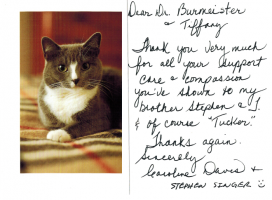 Dear Dr. Burmeister
& Tiffany
Thank you very much
for all your support
care & compassion
you've shown to my
brother Stephen & I.
& of course "Tucker".
Thanks again.
Sincerely
Caroline Davis &
STEPHEN SINGER ☺